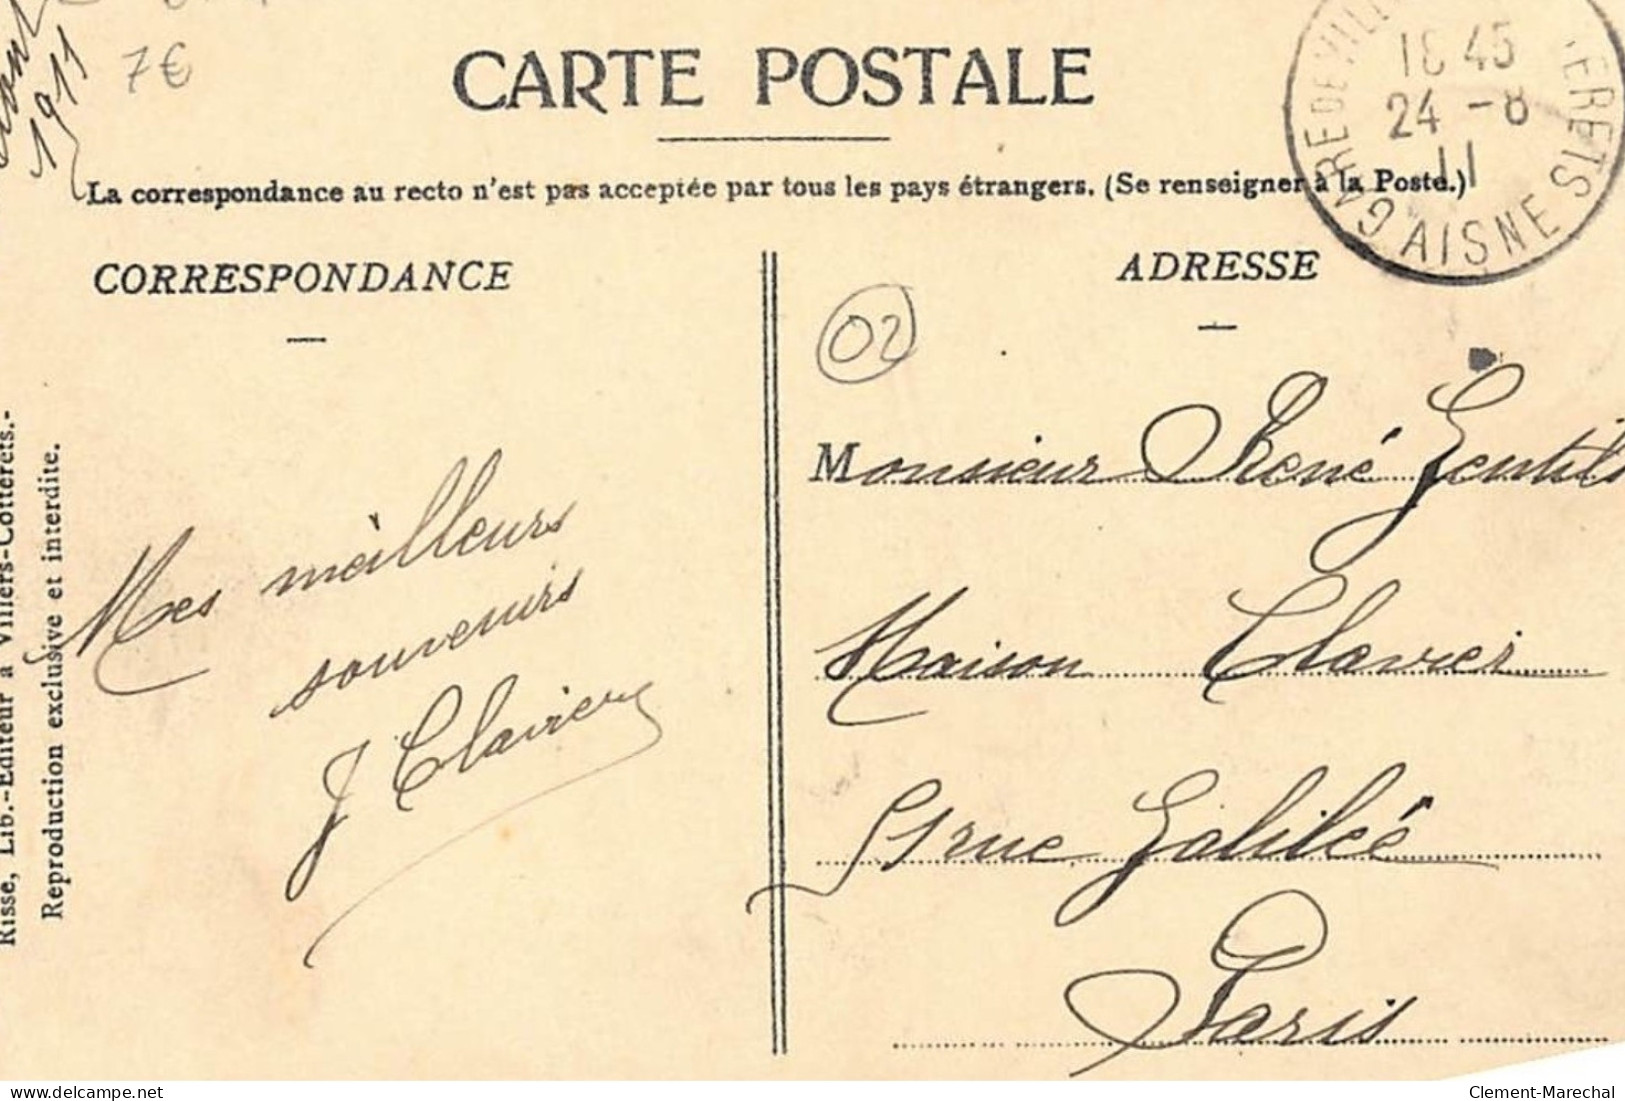 1911
7€
CARTE POSTALE
La correspondance au recto n'est pas acceptée par tous les pays étrangers. (Se renseigner à la Poste.)
GARE DE VILL ERETS
18 45
24 -8
11
AISNE
CORRESPONDANCE
ADRESSE
02
Mes meilleurs
souvenirs
J Clavier
Monsieur René Gentils
Maison Clavier
51 rue Galilée
Paris
Risse, Lib.-Editeur à Villers-Cotterets.-
Reproduction exclusive et interdite.
delcampe.net
Clement-Marechal